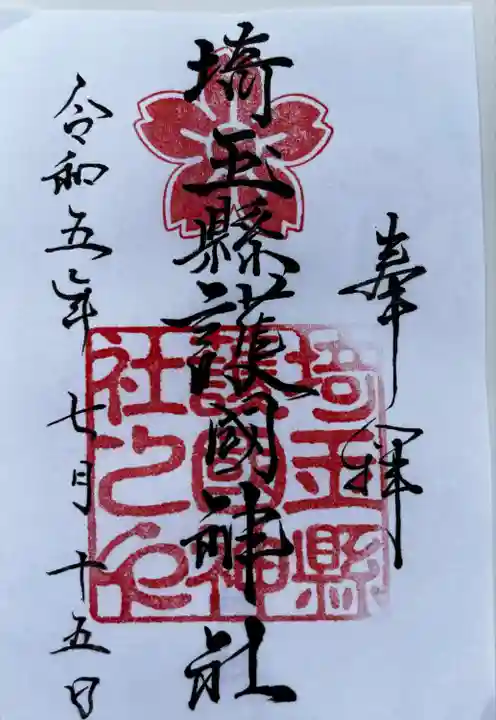 奉拝
埼玉縣護國神社
埼玉縣
護國神
社之印
令和五年 七月 十五日